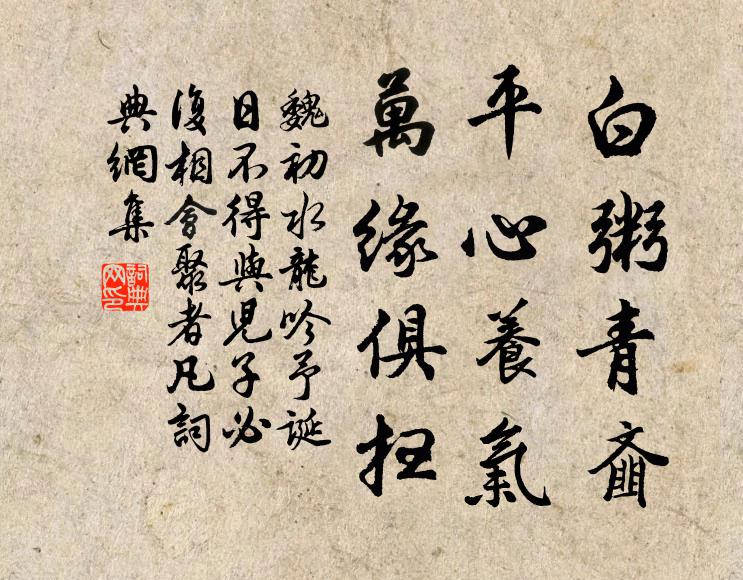 白粥青齑
平心養氣
萬緣俱扫
魏初水龍吟予誕
日不得與兒子必
復相會聚者凡詞
典網集
詞典
网印